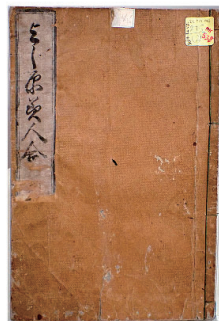 よし原美人合